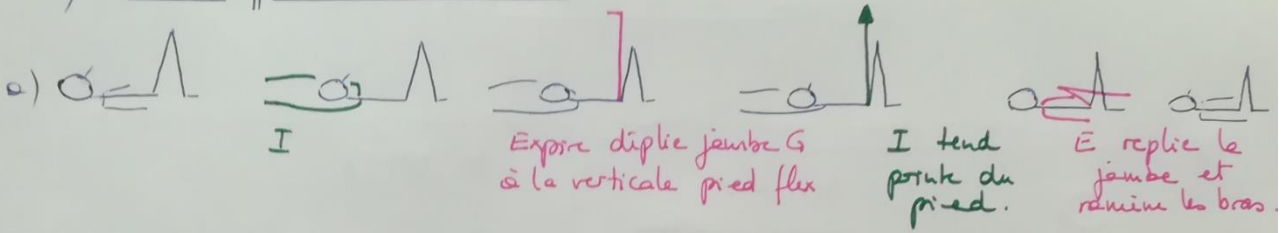 a)
I
Expire déplie jambe G
à la verticale pied flex
I tend
pointe du
pied.
E replie la
jambe et
ramène les bras.